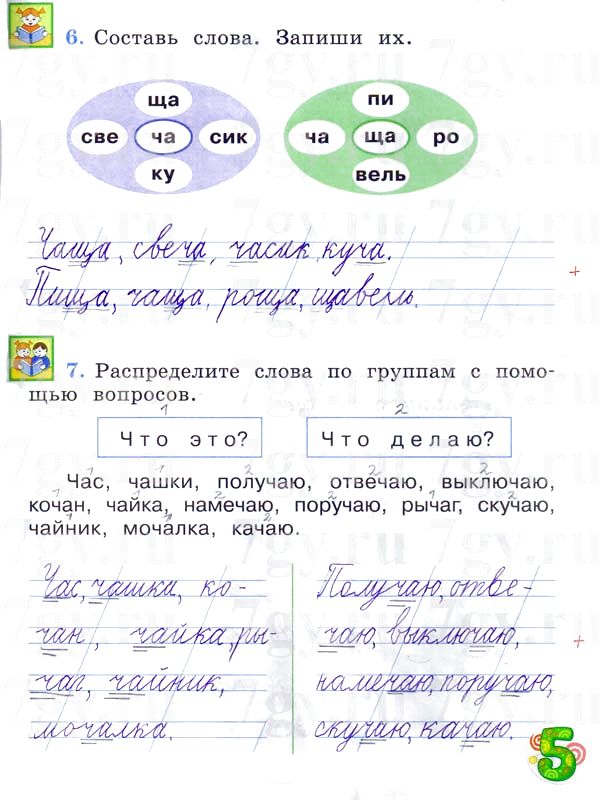 6. Составь слова. Запиши их.
ща
све ча сик
ку
пи
ча ща ро
вель
Чаща, свеча, часик куча.
Пища, чаща, роща, щавель.
+
7. Распределите слова по группам с помо-
щью вопросов.
1 2
Что это? Что делаю?
Час, чашки, получаю, отвечаю, выключаю,
кочан, чайка, намечаю, поручаю, рычаг, скучаю,
чайник, мочалка, качаю.
Час, чашка, ко-
чан, чайка, ры-
чаг, чайник,
мочалка.
Получаю, отве-
чаю, выключаю,
намечаю, поручаю,
скучаю, качаю.
+
5
7gy.ru